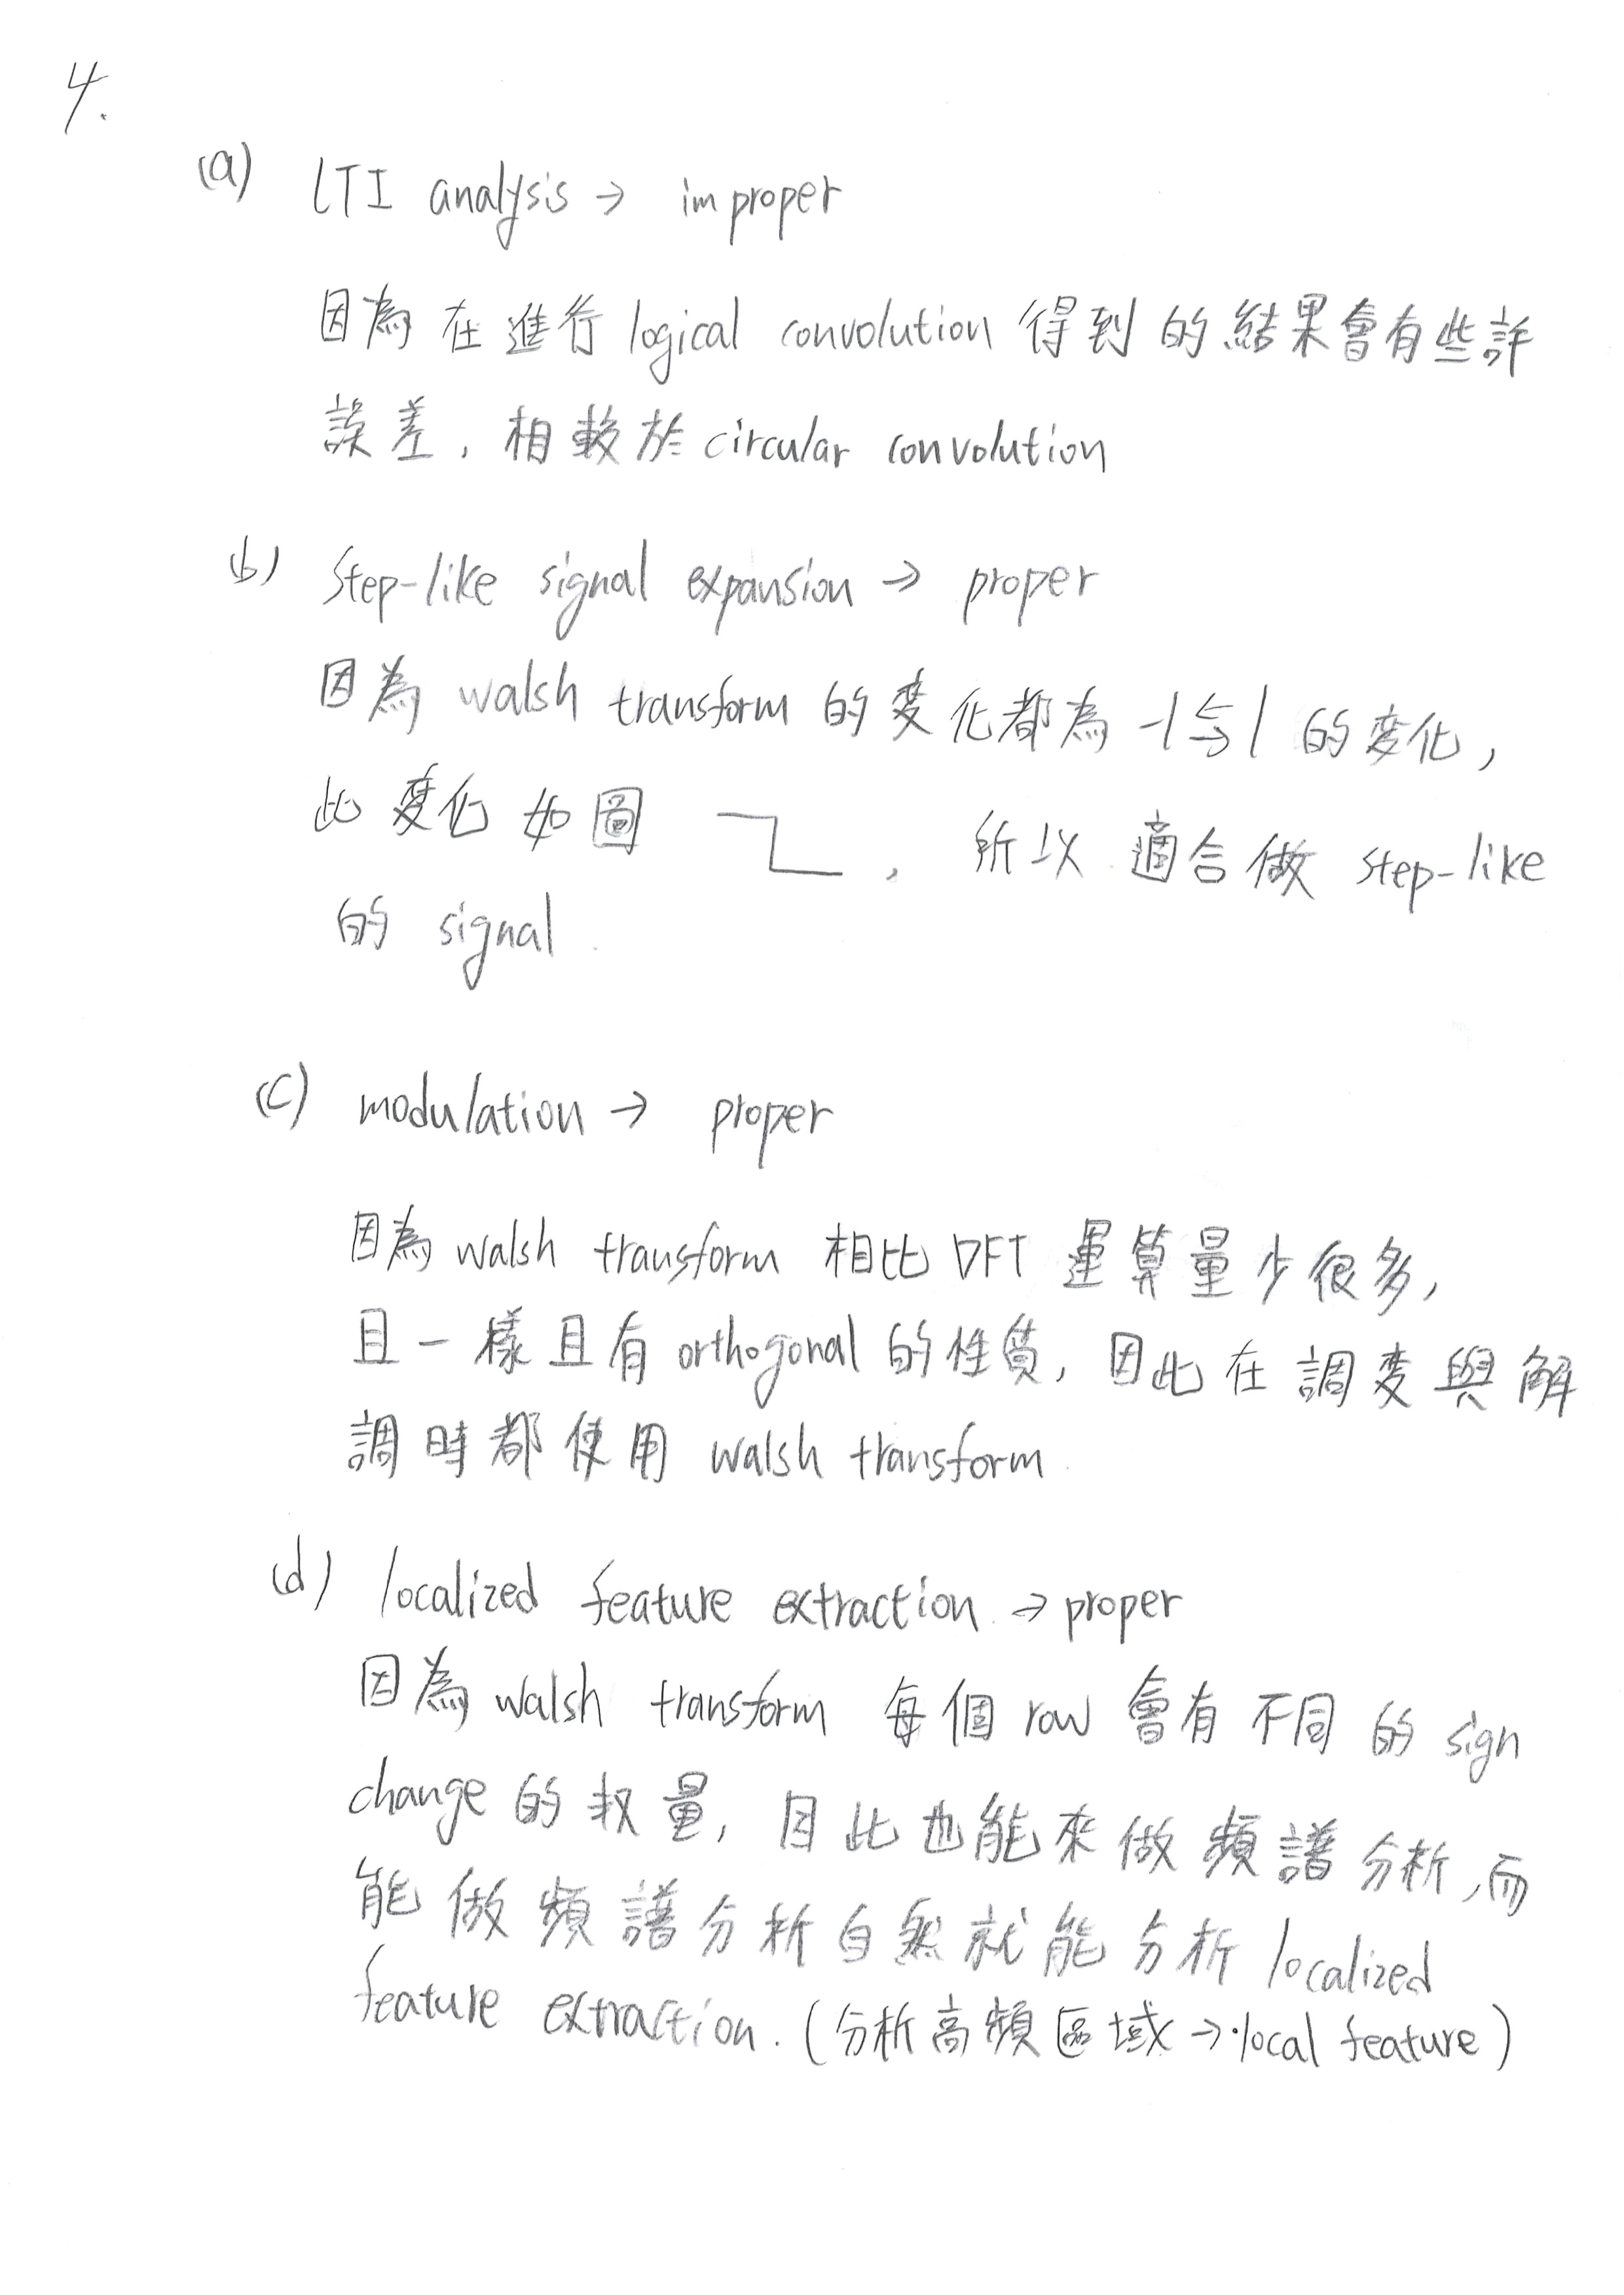 4.
(a) LTI analysis → improper
因為在進行 logical convolution 得到的結果會有些許
誤差, 相較於 circular convolution
(b) step-like signal expansion → proper
因為 walsh transform 的變化都為 -1⇆1 的變化,
此變化如圖 , 所以適合做 step-like
的 signal.
(c) modulation → proper
因為 walsh transform 相比 DFT 運算量少很多,
且一樣且有 orthogonal 的性質, 因此在調變與解
調時都使用 walsh transform.
(d) localized feature extraction → proper
因為 walsh transform 每個 row 會有不同的 sign
change 的权量, 因此也能來做頻譜分析, 而
能做頻譜分析自然就能分析 localized
feature extraction. (分析高頻區域 → local feature)